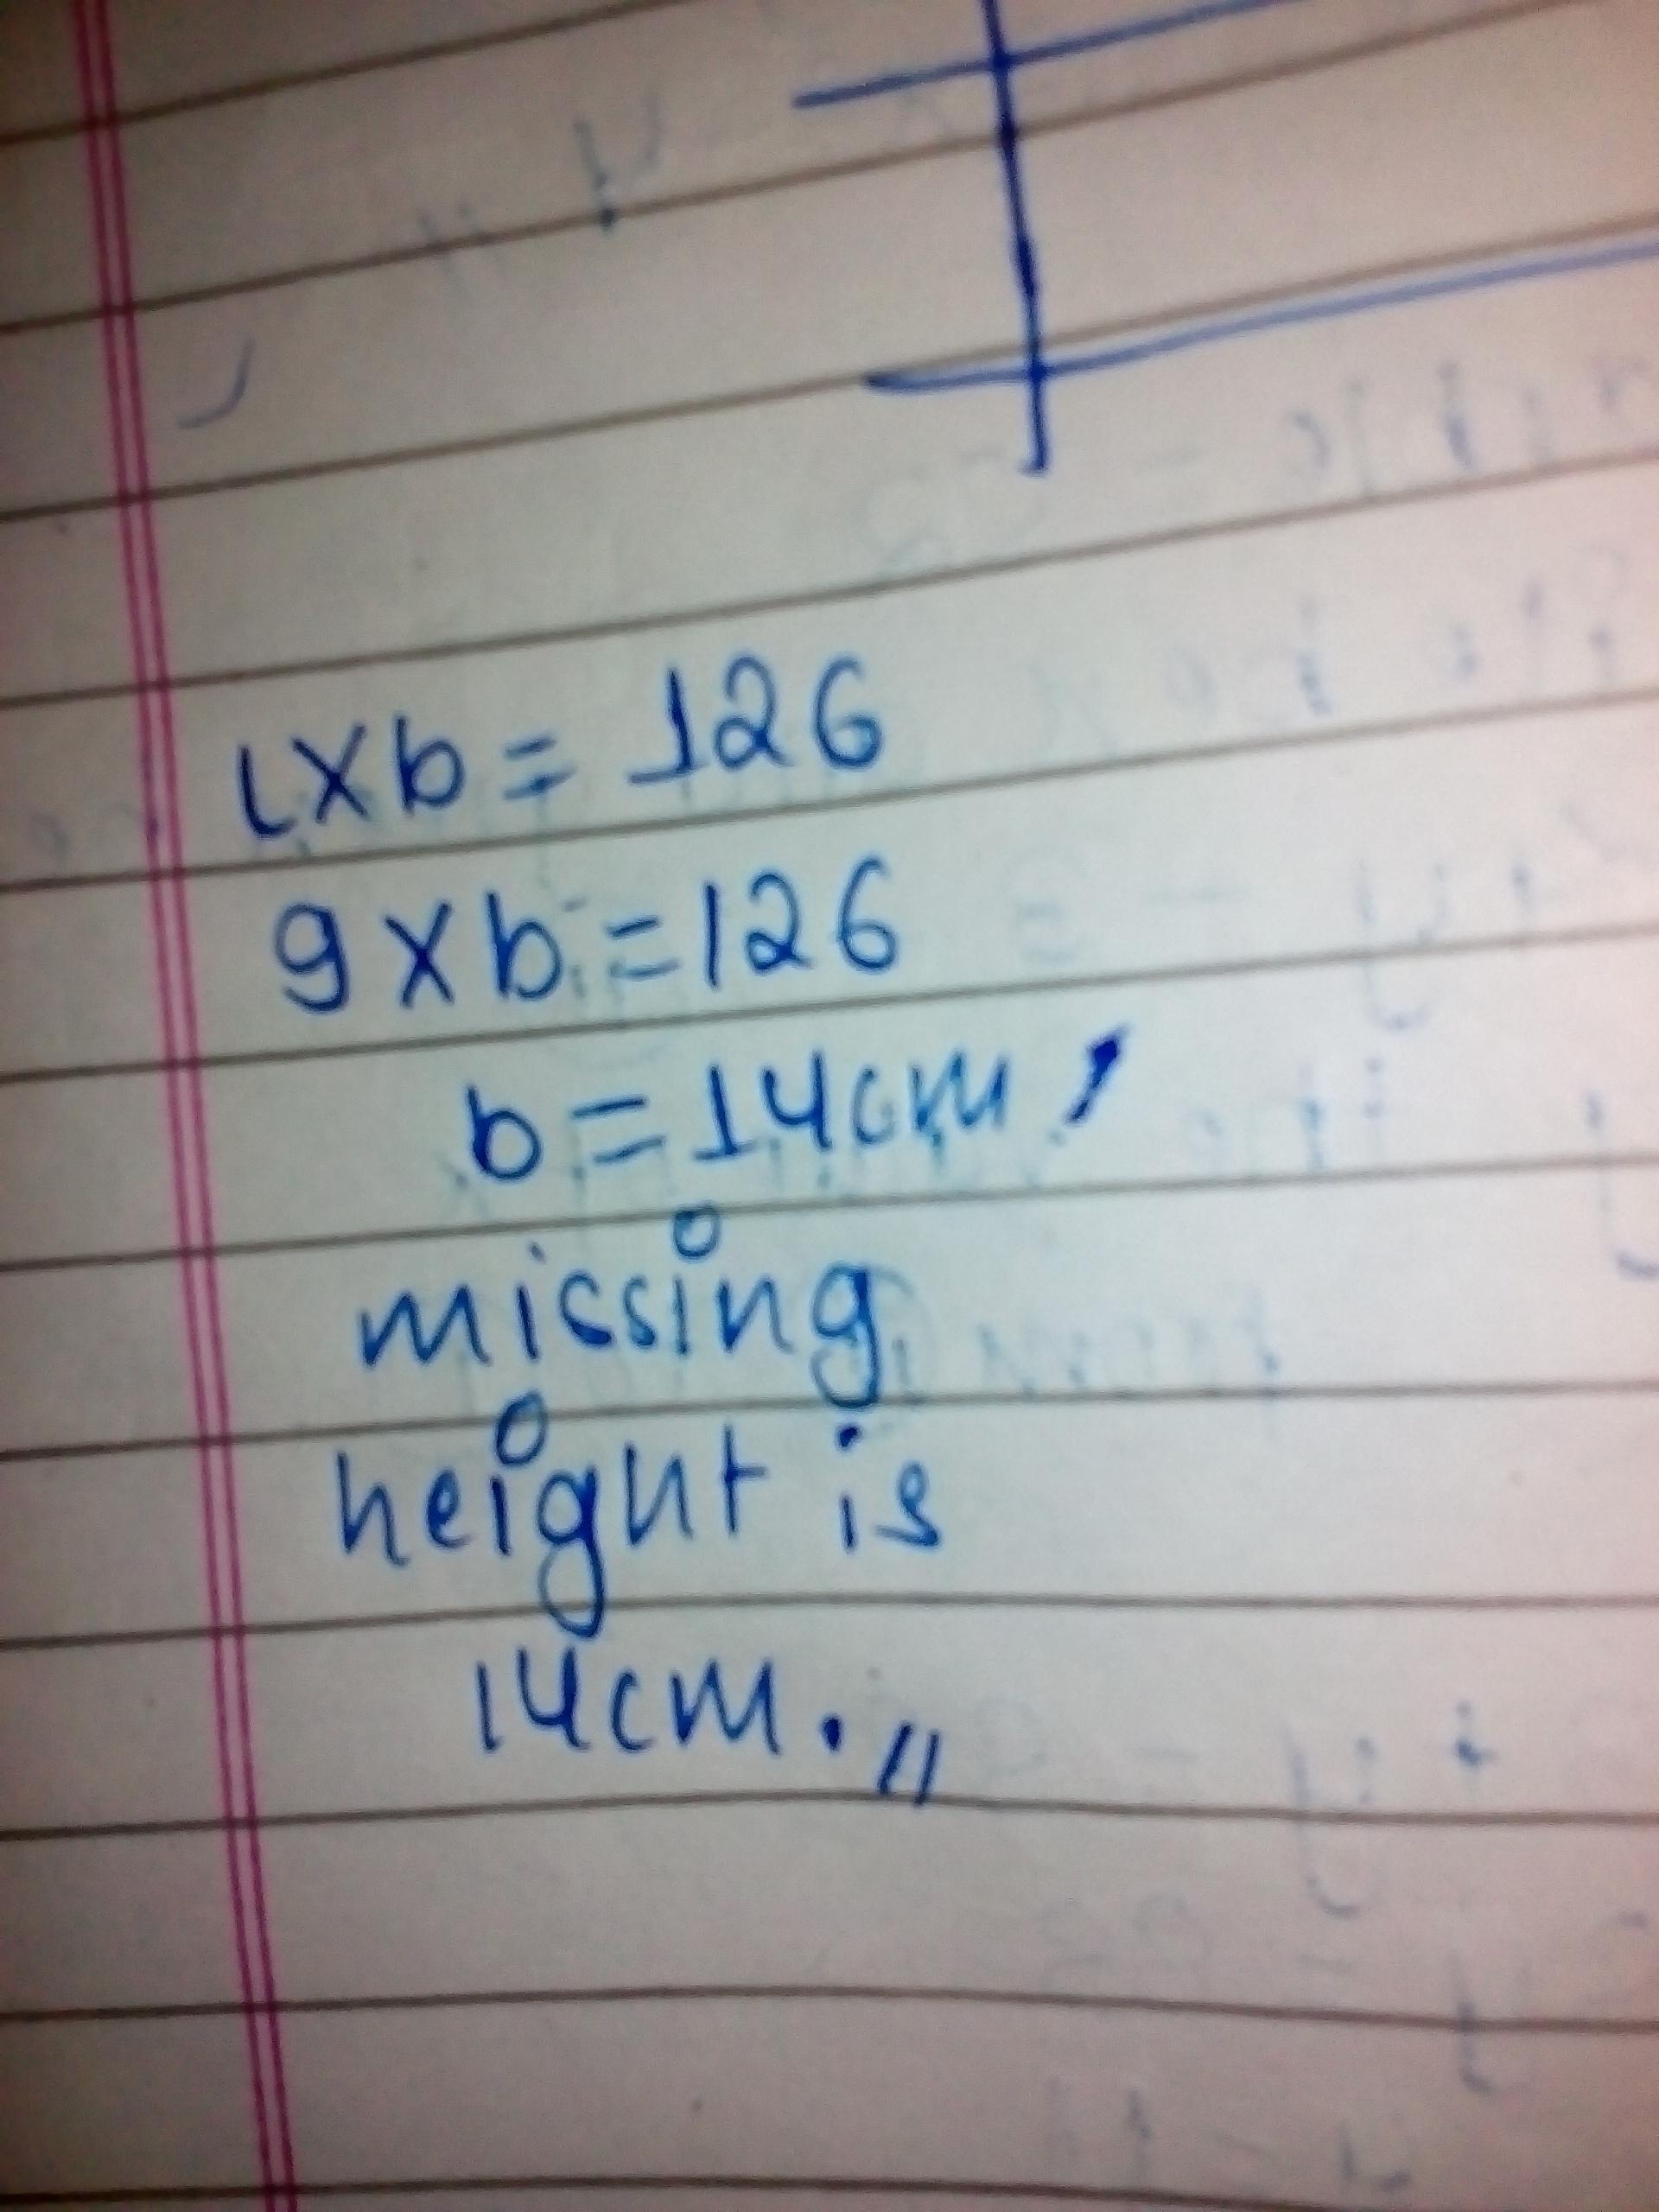 l×b = 126
9×b = 126
b = 14cm,
missing
height is
14cm.,,